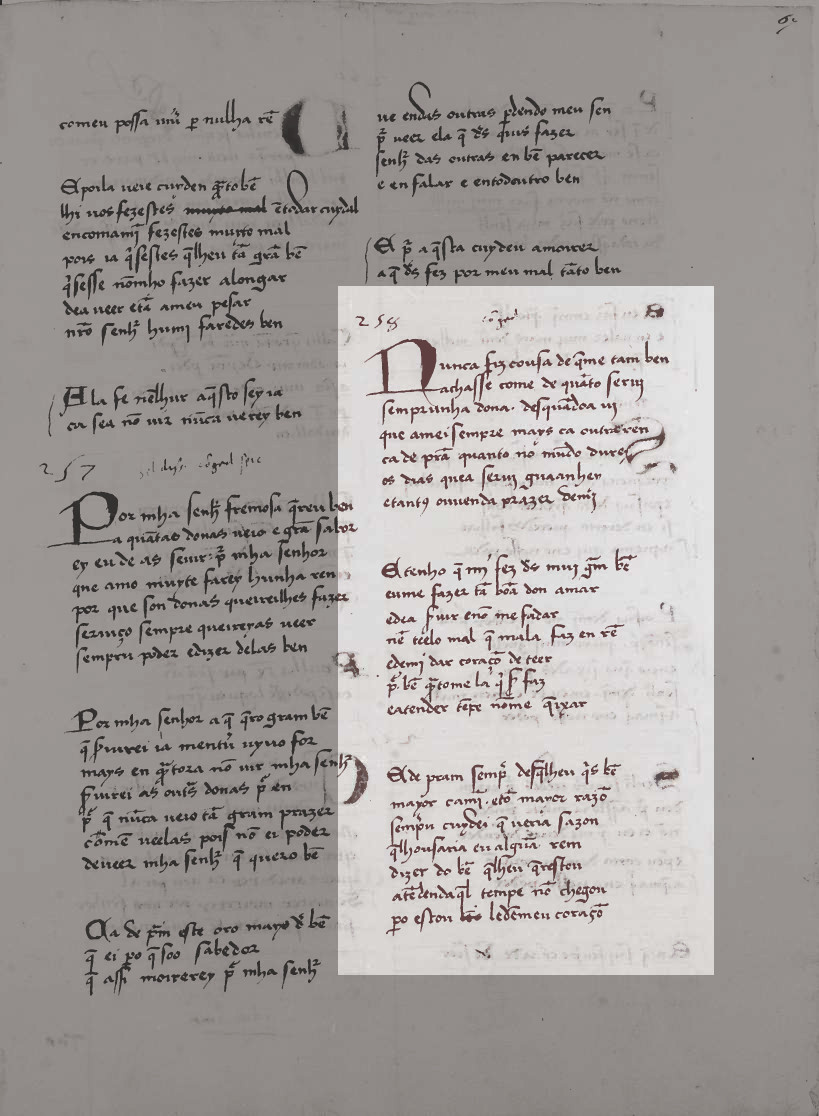 comeu possa uiu͂ ꝑ nulha rē
E poila ueie cuyden q̄ꝛto bē
lhi uos fezestes muyto mal ētodar cuydal
encomamī fezestes muyto mal
pois ia q̄sestes q̄lheu tā grā bē
q̄sesse nōmho fazer alongar
dea ueer etā ameu pesar
nr̄o senhr̄ humī faredes ben
E la fe nēlhur aq̄sto sey ia
ca sea nō uir nūca uerey ben
257
Por mha senhr̄ fremosa q̄reu ben
a quātas donas ueio e grā sabor
ey eu de as seruir p̄ mha senhor
que amo muyto farey hunha ren
por que son donas queireilhes fazer
seruiço sempre queireyas ueer
sempru poder edizer delas ben
Por mha senhor a q̄ q̄ro gram bē
q̄ s̄uirei ia mentr̄ uyuo for
mays en q̄ꝛtora nō uir mha senhr̄
s̄uirei as outs̄ donas p̄ en
p̄ q̄ nūca ueio tā gram prazer
comē ueelas pois nō ei poder
deueer mha senhr̄ q̄ quero bē
Ca de p̄m este oro mayor bē
q̄ ei ꝑo q̄ soo sabedor
q̄ assi moirerey p̄ mha senhr̄
ue endas outras ꝑdendo meu sen
p̄ ueer ela q̄ ds̄ q̄uis fazer
senhr̄ das outras en bē parecer
e en falar e entodoutro ben
E p̄ a q̄sta cuydeu amoirer
a q̄ ds̄ fez por meu mal tāto ben
258
Nunca fiz cousa de q̄me tam ben
achasse come de quāto serui
sempru͂nha dona. desquādoa ui
que amei sempre mays ca outra ren
ca de prā quanto nō mūdo durey
os dias quea serui guaanhey
etantꝯ ouuenda prazer demī
E tenho q̄ mī fez ds̄ mui grā bē
eume fazer tā bōa don amar
edea s̄uir enō me fadar
nē teelo mal q̄ mala faz en rē
edemī dar coraçō de teer
p̄ bē q̄ꝛtome la q̄s̄ faz
eatender tēpe nōme q̄ixar
E de pram semp̄ desq̄lheu q̄s bē
mayor camī. etō mayor razō
sempru cuydei q̄ ueria sazon
q̄lhousaria eu algūa rem
dizer do bē q̄lheu q̄restou
atēdendaq̄l tempe nō chegou
ꝑo estou ledēmeu coraçō